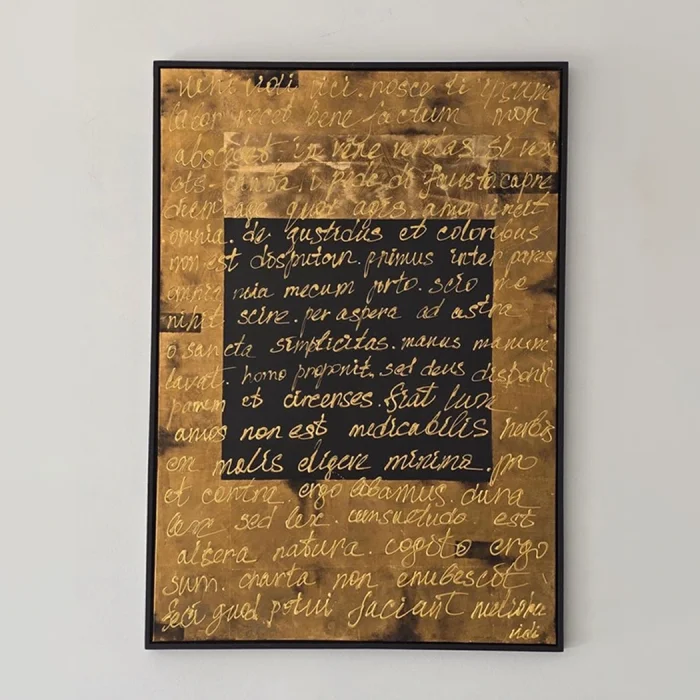 veni vidi vici. nosce te ipsum
labor recet bene factum non
abscedet. in vino veritas si vox
est. canta, i pede fausto. carpe
diem. age quod agis. amor vincit
omnia. de gustidus et colorious
non est disputan. primus inter pares
omnia mia mecum porto. scio me
nihil scire. per aspera ad astra
o sancta simplicitas. manus manum
lavat. homo proponit, sed deus disponit
panem et circenses. fiat lux
amos non est medicabilis herbis
ex malis eligere minima. pro
et contra. ergo bibamus. dura
lex sed lex. consuetudo est
altera natura. cogito ergo
sum. charta non erubescit
feci quod potui faciant meliora
vidi